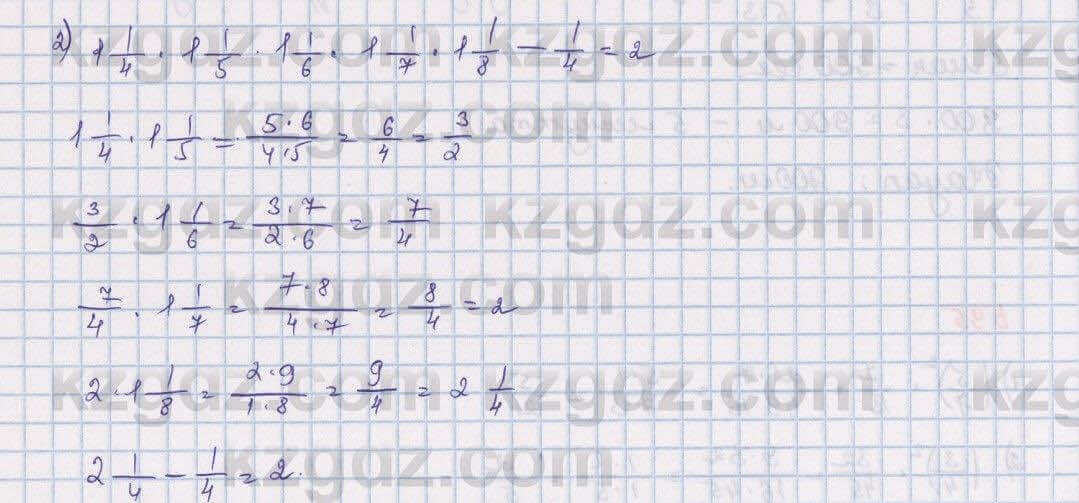 2) 1 1/4 · 1 1/5 · 1 1/6 · 1 1/7 · 1 1/8 − 1/4 = 2
1 1/4 · 1 1/5 = 5·6/4·5 = 6/4 = 3/2
3/2 · 1 1/6 = 3·7/2·6 = 7/4
7/4 · 1 1/7 = 7·8/4·7 = 8/4 = 2
2 · 1 1/8 = 2·9/1·8 = 9/4 = 2 1/4
2 1/4 − 1/4 = 2.
kzgdz.com